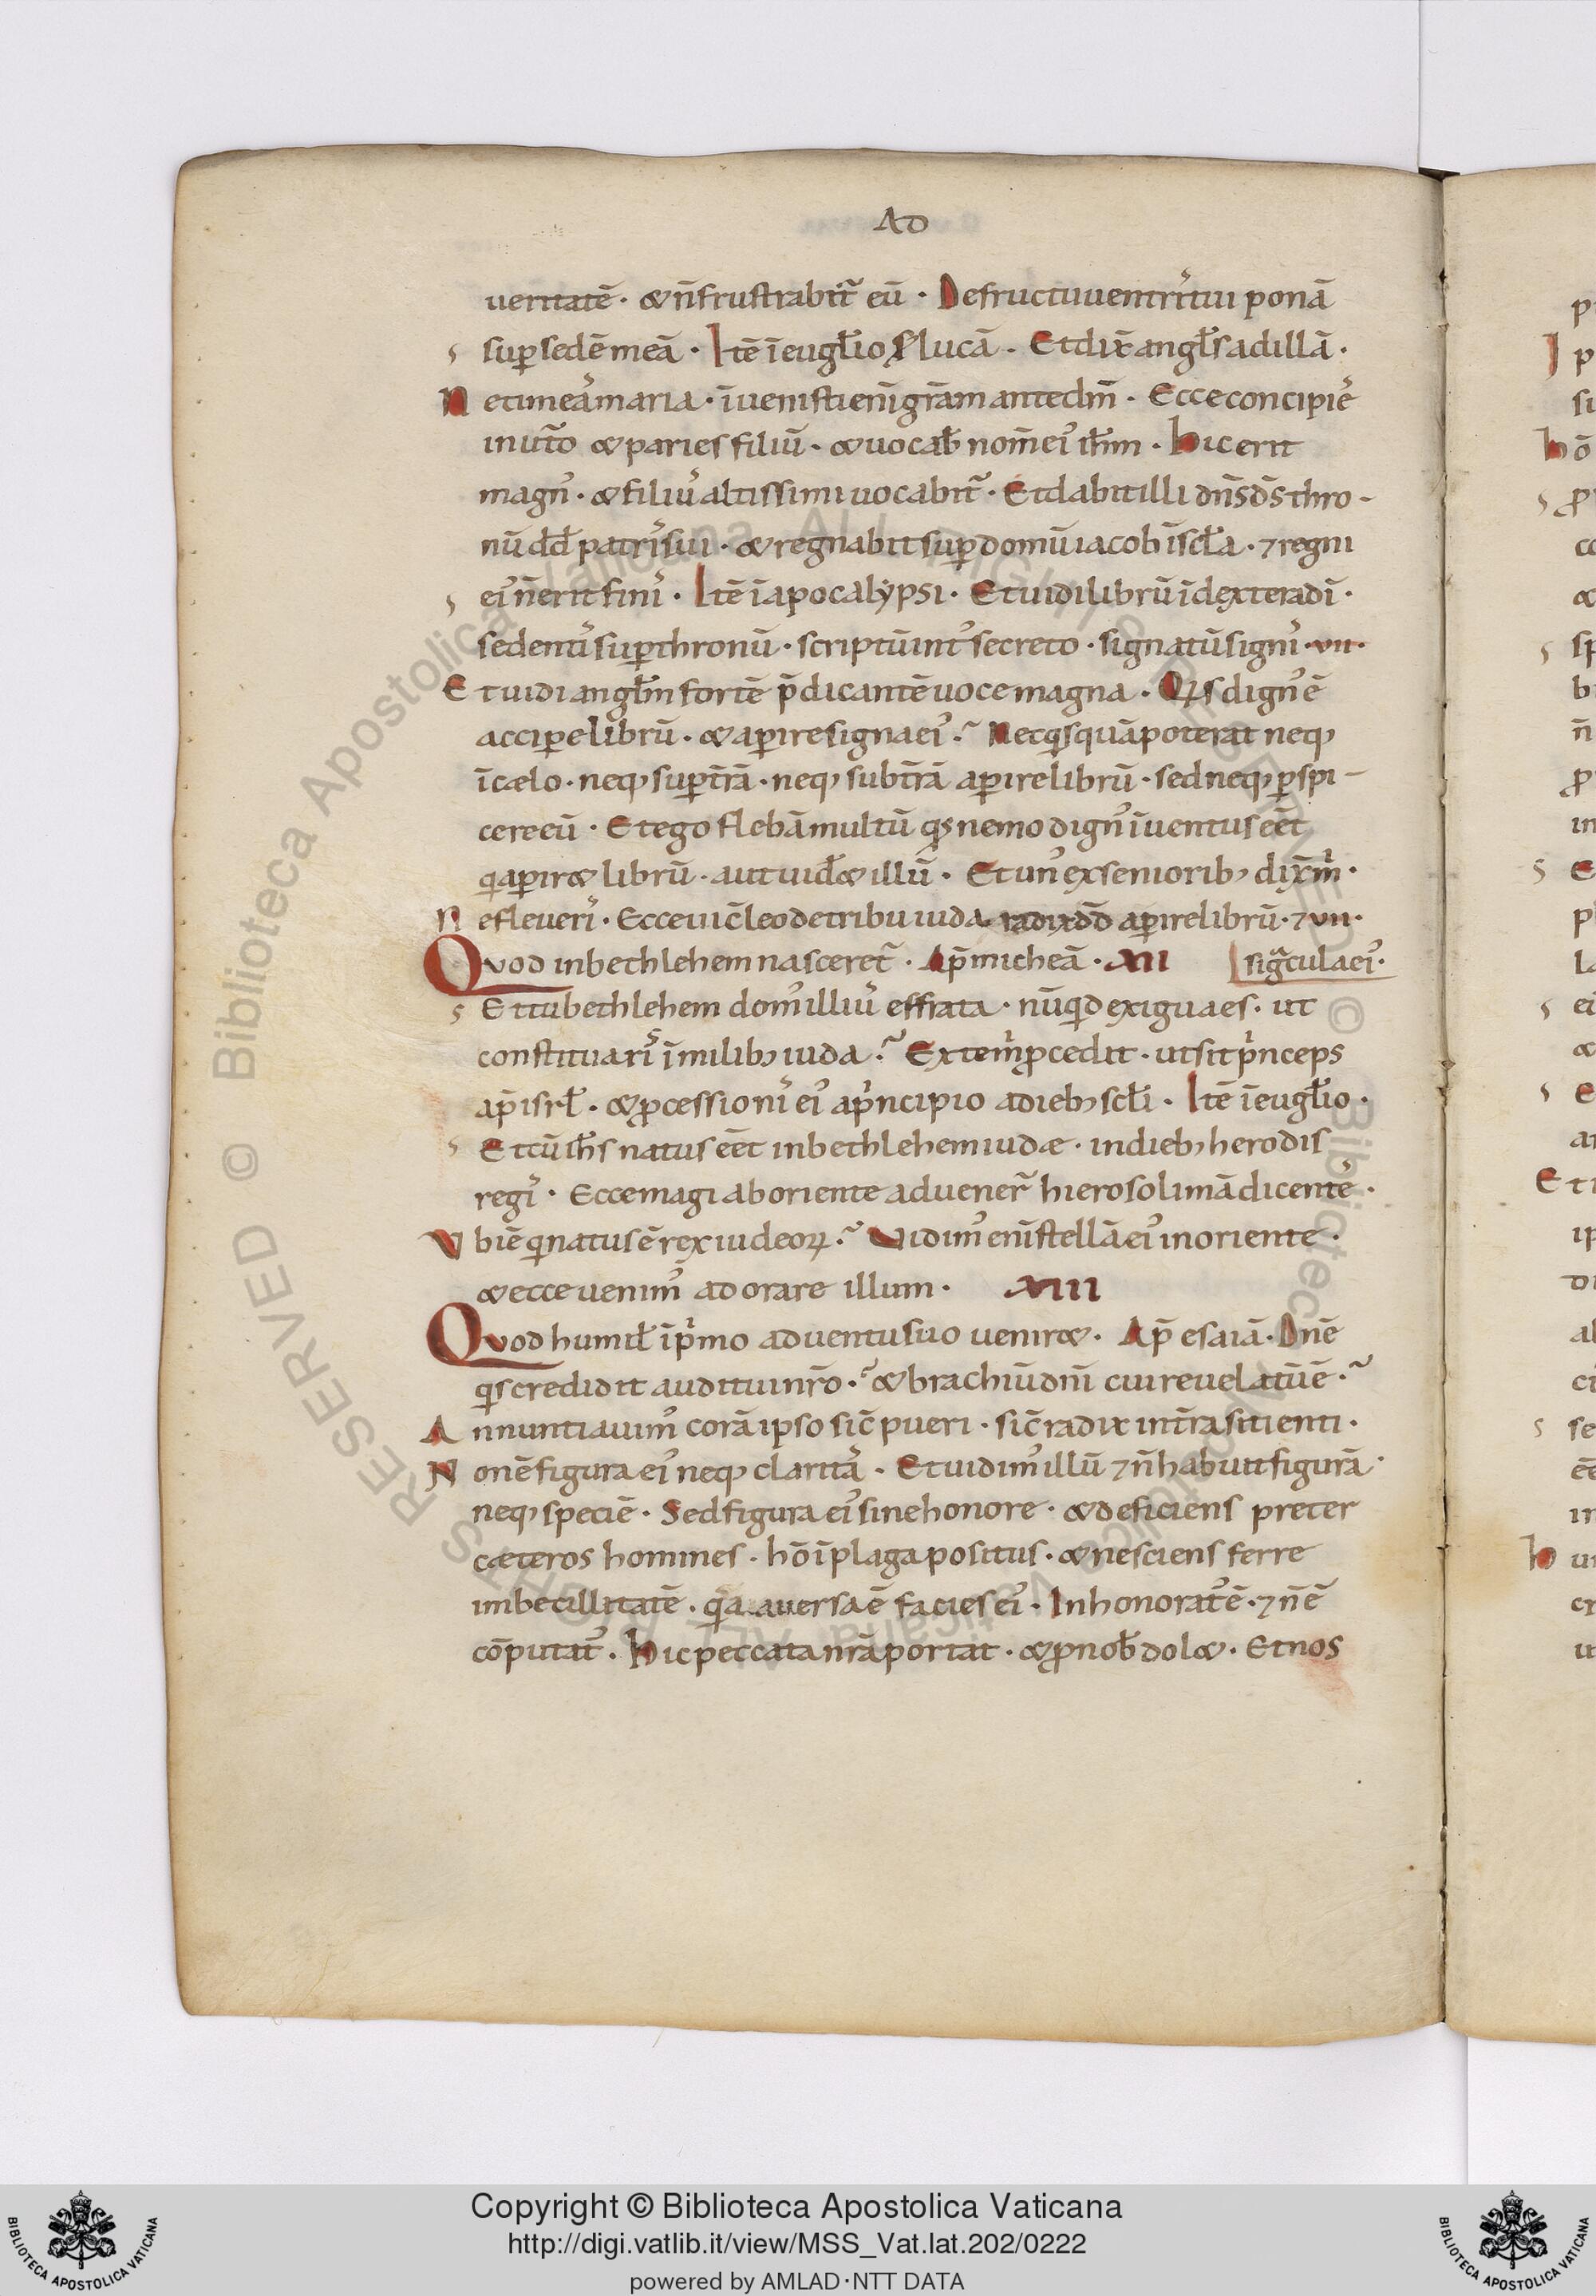 AD
ueritatē · & n̄ frustrabit᷑ eū · De fructu uentrꝰ tui ponā
suꝑ sedē meā · Itē ī euḡlio s lucā · Et dix̄ angl̄s ad illā ·
Ne timeaꝰ maria · īuenisti eni᷑ grām ante dm̄ · Ecce concipieꝰ
in uto᷑ & paries filiū · & uocab̄ nom̄ eiꝰ ih̄m · Hic erit
magnꝰ · & filiuꝰ altissimi uocabit᷑ · Et dabit illi dn̄s d̄s thro-
nū dd̄ patrꝰ sui · & regnabit suꝑ domū iacob ī scl̄a · ⁊ regni
eiꝰ n̄ erit finiꝰ · Itē ī apocalypsi · Et uidi librū ī dextera dī ·
sedentꝰ suꝑ thronū · scriptū intꝰ secreto · signatū signiꝰ · vii ·
Et uidi angl̄m fortē p̄dicantē uoce magna · Qiꝰs dignꝰ ē
acciꝑe librū · & aꝑire signa eiꝰ ·᷑ Nec qisquā poterat neq;
ī cælo · neq; suꝑ tr̄ā · neq; sub tr̄ā aꝑire librū · sed neq; ꝑspi-
cere eū · Et ego flebā multū qꝫ nemo dignꝰ īuentus eēt
qi aꝑir& librū · aut uid̄& illū · Et unꝰ ex seniorib; dix̄ m̄ ·
Ne fleueriꝰ · Ecce uic̄ leo de tribu iuda radix dd̄ aꝑire librū · ⁊ vii ·
Quod in bethlehem nasceret᷑ · Ap̄ micheā · XII sigᷓcula eiꝰ ·
Et tu bethlehem domꝰ illiuꝰ effrata · nūqid exigua es · ut
constituariꝰ ī milib; iuda ·᷑ Ex te m̄ ꝓcedit · ut sit pinceps
ap̄ isrl̄ · & ꝓcessioniꝰ eiꝰ a pincipio a dieb; scl̄i · Itē ī euḡlio ·
Et cū ih̄s natus eēt in bethlehem iudæ · in dieb; herodis
regiꝰ · Ecce magi ab oriente aduener᷑ hierosolimā dicenteꝰ ·
Vbi ē qi natus ē rex iudeoꝝ ·᷑ Vidimꝰ eni᷑ stellā eiꝰ in oriente ·
& ecce uenimꝰ adorare illum · XIII
Quod humil̄ ī pimo aduentu suo uenir& · Ap̄ esaiā · Dn̄e
qis credidit auditui nr̄o ·᷑ & brachiū dn̄i cui reuelatū ē ·᷑
Annuntiauimꝰ corā ipso sic̄ pueri · sic̄ radix in tr̄a sitienti ·
Non ē figura eiꝰ neq; claritaꝰ · Et uidimꝰ illū ⁊ n̄ habuit figurā ·
neq; speciē · Sed figura eiꝰ sine honore · & deficiens preter
cæteros homines · hō ī plaga positus · & nesciens ferre
imbecillitatē · qia auersa ē facies eiꝰ · Inhonoratꝰ ē · ⁊ n̄ ē
cōputatꝰ · Hic peccata nr̄a portat · & ꝓ nob̄ dol& · Et nos
Copyright © Biblioteca Apostolica Vaticana
http://digi.vatlib.it/view/MSS_Vat.lat.202/0222
powered by AMLAD·NTT DATA